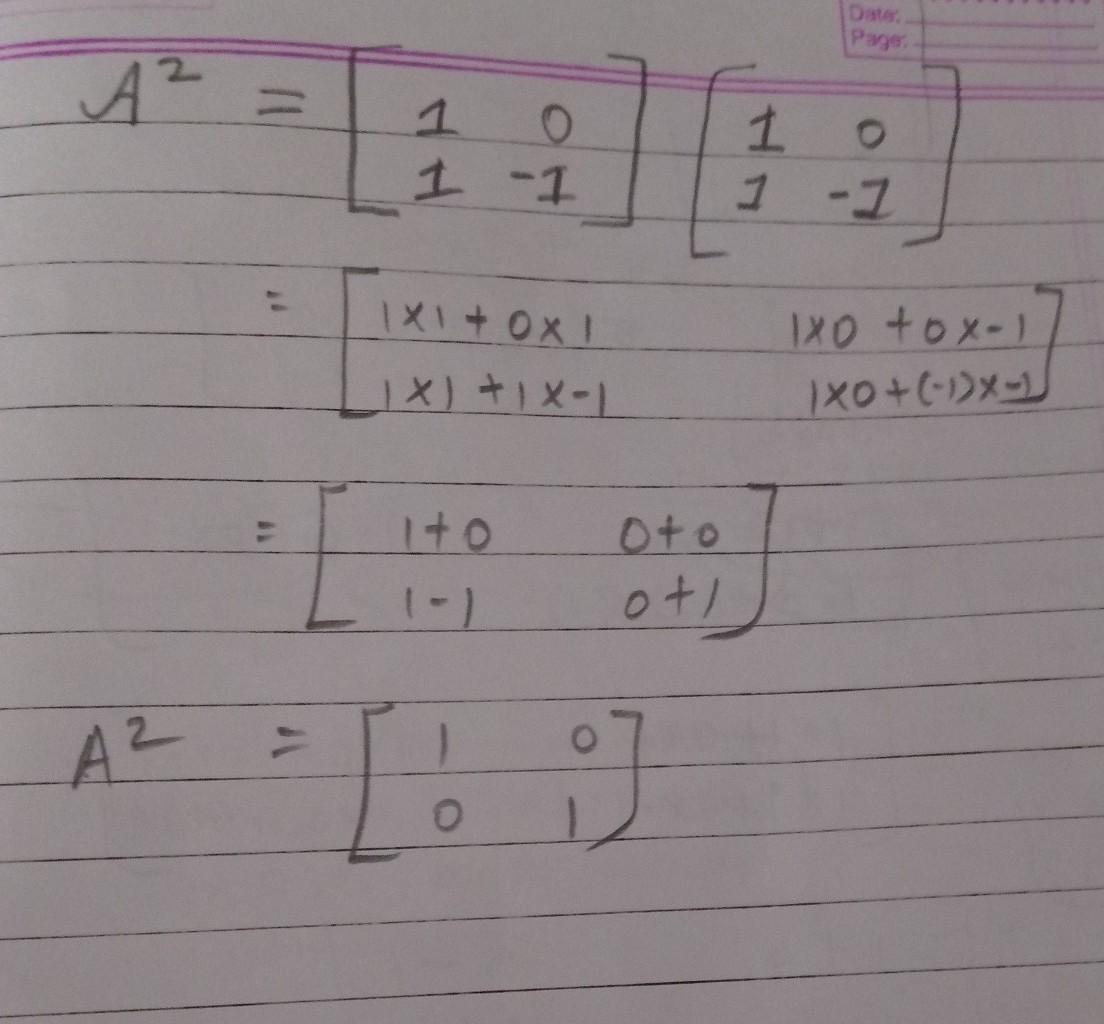 Date:
Page:
A² = [ 1 0 ] [ 1 0 ]
[ 1 -1 ] [ 1 -1 ]
= [ 1×1 + 0×1 1×0 + 0×-1 ]
[ 1×1 + 1×-1 1×0 + (-1)×-1 ]
= [ 1+0 0+0 ]
[ 1-1 0+1 ]
A² = [ 1 0 ]
[ 0 1 ]